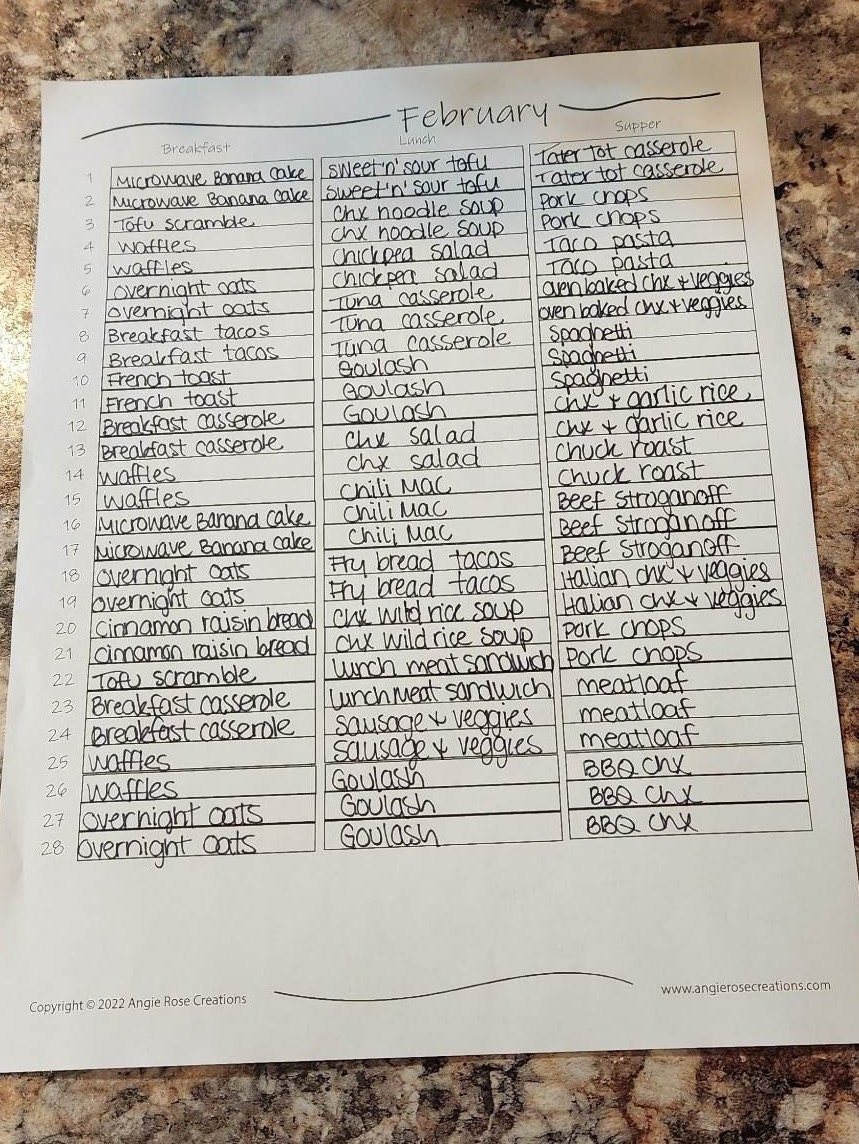 February
Breakfast Lunch Supper
1 Microwave Banana Cake sweet 'n' sour tofu Tater tot casserole
2 Microwave Banana Cake sweet 'n' sour tofu Tater tot casserole
3 Tofu scramble chx noodle soup Pork chops
4 waffles chx noodle soup Pork chops
5 waffles chickpea salad Taco pasta
6 overnight oats chickpea salad Taco pasta
7 overnight oats Tuna casserole oven baked chx + veggies
8 Breakfast tacos Tuna casserole oven baked chx + veggies
9 Breakfast tacos Tuna casserole Spaghetti
10 French toast Goulash Spaghetti
11 French toast Goulash Spaghetti
12 Breakfast casserole Goulash chx + garlic rice
13 Breakfast casserole chx salad chx + garlic rice
14 waffles chx salad Chuck roast
15 waffles Chili Mac Chuck roast
16 Microwave Banana cake Chili Mac Beef Stroganoff
17 Microwave Banana cake Chili Mac Beef Stroganoff
18 overnight oats Fry bread tacos Beef Stroganoff
19 overnight oats Fry bread tacos Italian chx + veggies
20 cinnamon raisin bread chx wild rice soup Italian chx + veggies
21 cinnamon raisin bread chx wild rice soup Pork chops
22 Tofu scramble lunch meat sandwich Pork chops
23 Breakfast casserole lunch meat sandwich meatloaf
24 Breakfast casserole Sausage + veggies meatloaf
25 waffles Sausage + veggies meatloaf
26 waffles Goulash BBQ chx
27 overnight oats Goulash BBQ chx
28 overnight oats Goulash BBQ chx
Copyright © 2022 Angie Rose Creations www.angierosecreations.com